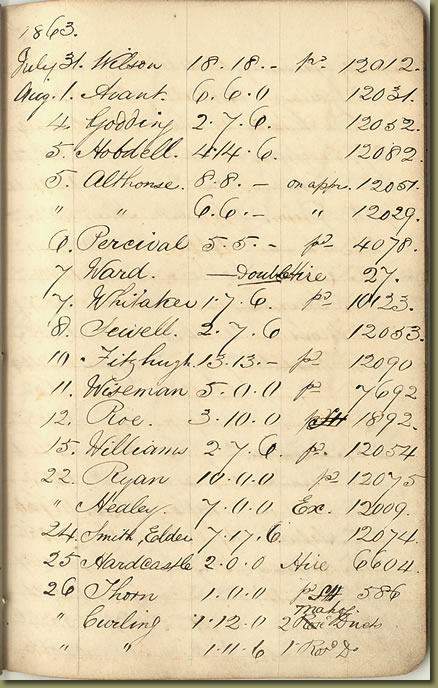 1863.
July 31. Wilson 18.18.- pd 12012.
Aug. 1. Avant. 6.6.0 12031.
4 Godding 2.7.6. 12052.
5. Hobdell. 4.14.6. 12082.
5. Althouse. 8.8.- on appr. 12051.
" " 6.6.- " 12029.
6. Percival 5.5.- pd 4078.
7 Ward. — Double Hire 27.
7. Whitaker 1.7.6. pd 10123.
8. Sewell. 2.7.6 12053.
10 Fitzhugh 13.13.- pd 12090
11. Wiseman 5.0.0 pd 7692
12. Roe. 3.10.0 1892.
15. Williams 2.7.6. pd. 12054
22. Ryan 10.0.0 pd 12075
" Healey. 7.0.0 Ex. 12009.
24. Smith, Elder 7.17.6. 12074.
25 Hardcastle 2.0.0 Hire 6604.
26 Thorn 1.0.0 pd 586
Mahy
" Curling 1.12.0 2 Rose Duets
" " 1.11.6 1 Rosd Do